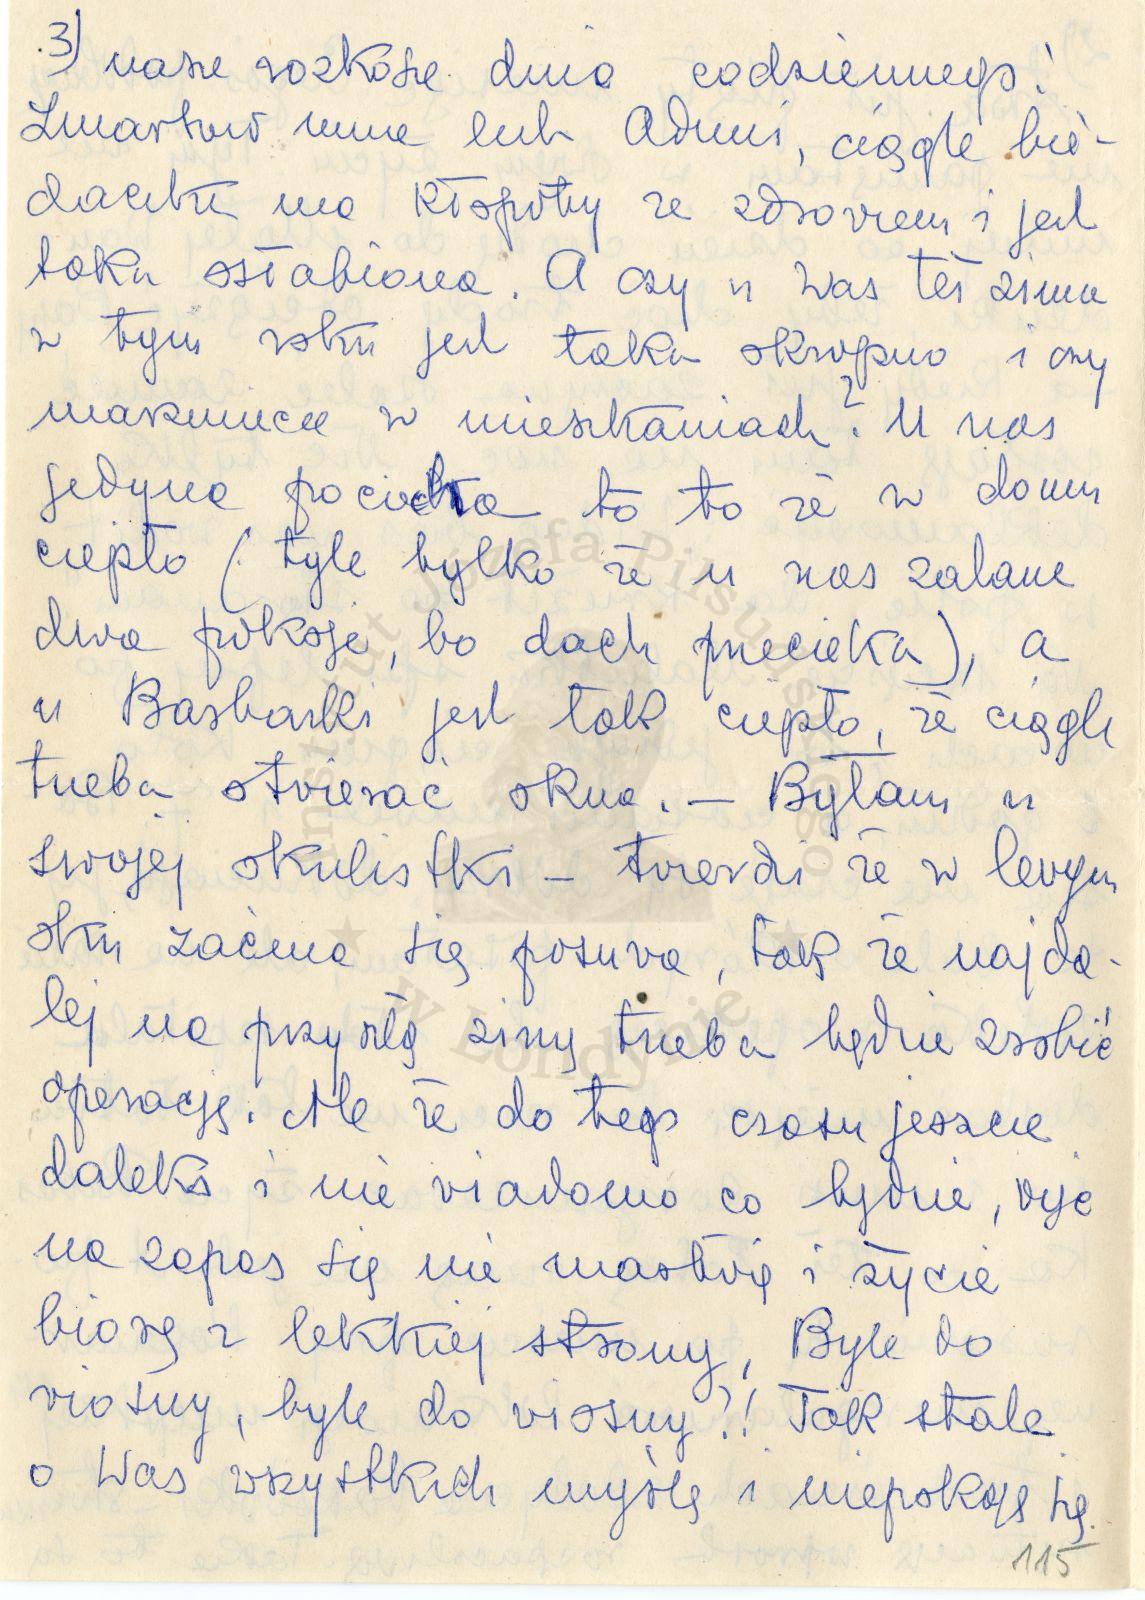 3) nasze rozkosze dnia codziennego!
Zmartwił mnie lub Adaś, ciągle bie-
daczka ma kłopoty ze zdrowiem i jest
taka osłabiona. A czy u Was też zima
w tym roku jest taka okropna i czy
marzniecie w mieszkaniach? U nas
jedyna pociecha to to że w domu
ciepło (tyle tylko że u nas zalane
dwa pokoje, bo dach przecieka), a
u Barbarki jest tak ciepło, że ciągle
trzeba otwierać okna. – Byłam u
swojej okulistki – twierdzi że w lewym
oku zaćma się posuwa, tak że najda-
lej na przyszłą zimę trzeba będzie zrobić
operację. Ale że do tego czasu jeszcze
daleko i nie wiadomo co będzie, więc
na zapas się nie martwię i życie
biorę z lekkiej strony, Byle do
wiosny, byle do wiosny?! Tak stale
o Was wszystkich myślę i niepokoję się.
115
Instytut Józefa Piłsudskiego
w Londynie